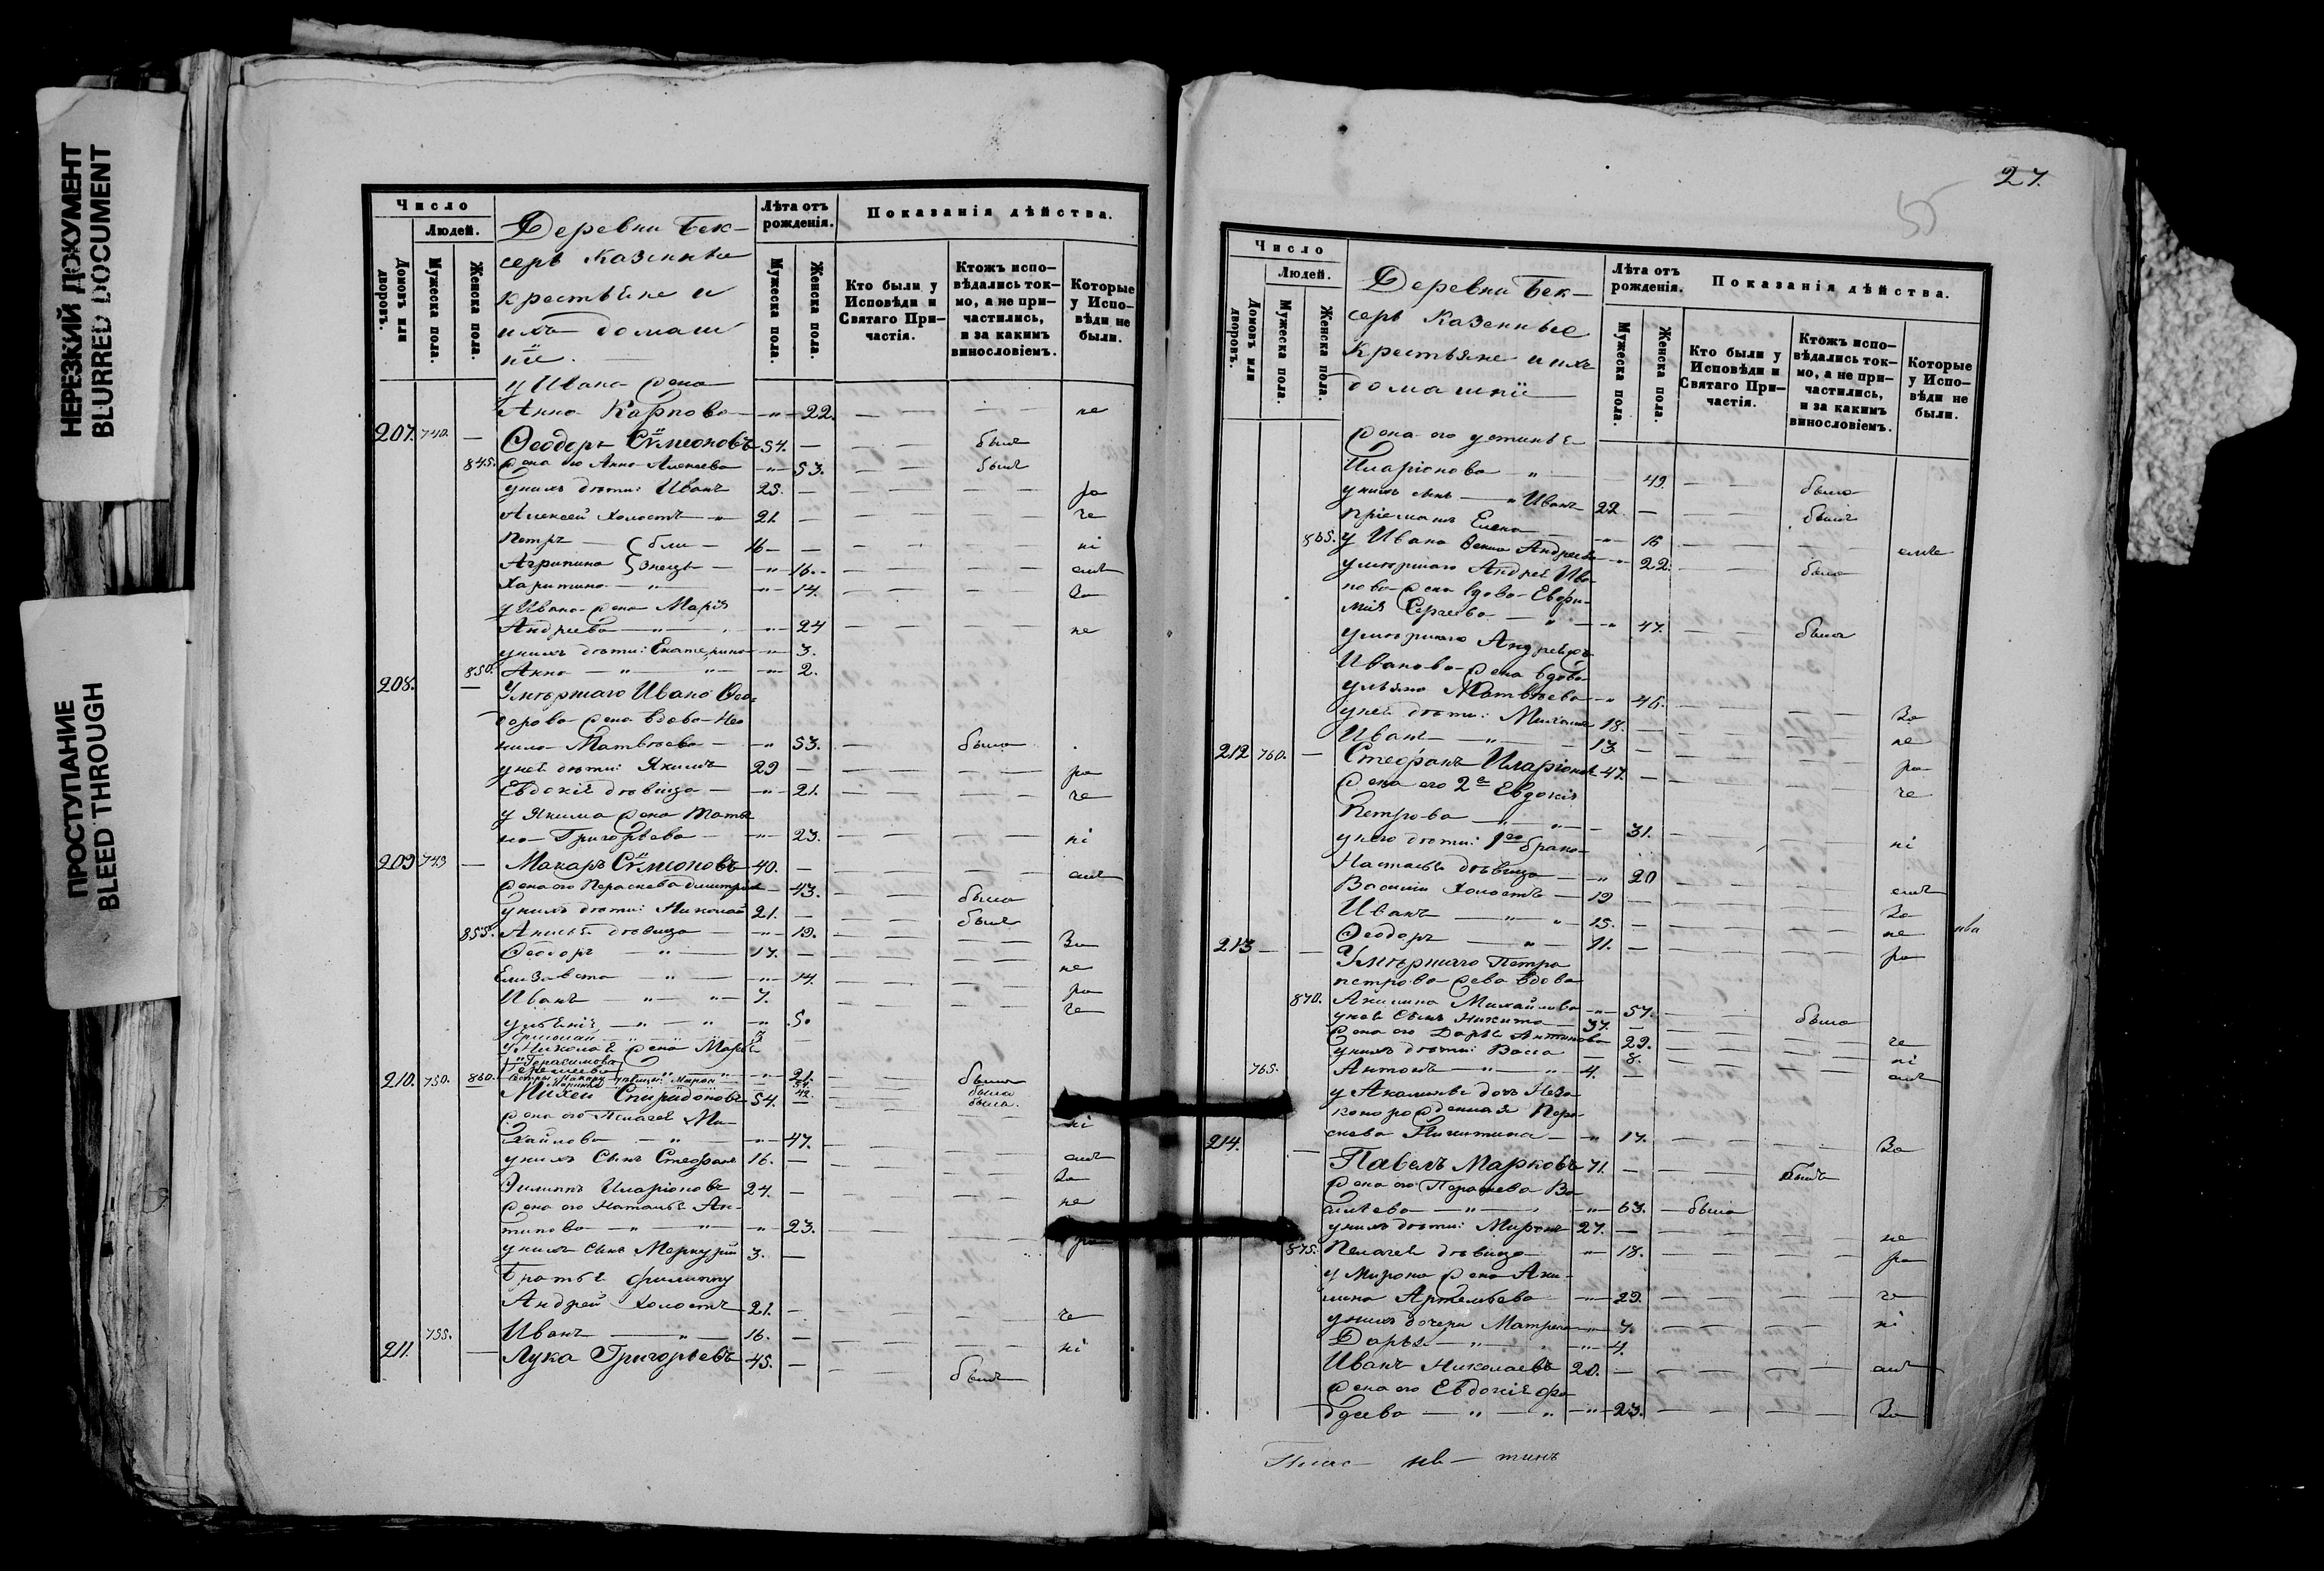 НЕРЕЗКИЙ ДОКУМЕНТ
BLURRED DOCUMENT
ПРОСТУПАНИЕ
BLEED THROUGH
Число
Людей.
Домовъ или дворовъ.
Мужеска пола.
Женска пола.
Деревни Бек-
серь Казенные
крестьяне и
ихъ домаш
ніе.
Лѣта отъ рожденія.
Мужеска пола.
Женска пола.
Показанія дѣйства.
Кто были у Исповѣди и Святаго При-частія.
Ктожъ испо-вѣдались ток-мо, а не при-частились, и за какимъ винословіемъ.
Которые у Испо-вѣди не были.
у Ивана жена
Анна Карпова — 22. не
207. 740. Ѳеодоръ Сѵмеоновъ 54. былъ
845. жена его Анна Алексеева 53.
у нихъ дѣти: Иванъ 25. ра
Алексей холостъ 21. че
Петръ бли 16 ні
Агрипина знецы 16. емъ
Харитина 14. За
у Ивана жена Марія
Андреева 24 не
у нихъ дѣти: Екатерина 3.
850. Анна 2.
208. Умѣршаго Ивана Ѳео-
дорова жена вдова Нео
нила Матвѣева 53. была
у ней дѣти: Якимъ 29 ра
Евдокія дѣвица 21. че
у Якима жена Татья
на Григорьева 23. ні
209 743 Макаръ Сѵмеоновъ 40. емъ
жена его Параскева Дмитріева 43. была
у нихъ дѣти: Николай 21. былъ
855. Анисья дѣвица 19. За
Ѳеодоръ 17. не
Елизавета 14. ра
Иванъ 7. че
5.
Ермолай 3
у Николая жена Марья
Герасимова
21. была
210. 750. 860. Михей Спиридоновъ 54. ні
жена его Пелагея Ми-
хайлова 47. емъ
у нихъ сынъ Стефанъ 16. За
Филиппъ Иларіоновъ 24. не
жена его Наталья Ан-
типова 23. ра
у нихъ сынъ Меркурій 3.
Братья Филиппу
Андрей холостъ 21. че
755. Иванъ 16. ні
211. Лука Григорьевъ 45. былъ
27.
55
Число
Людей.
Домовъ или дворовъ.
Мужеска пола.
Женска пола.
Деревни Бек-
серь Казенные
Крестьяне и ихъ
домашніе
Лѣта отъ рожденія.
Мужеска пола.
Женска пола.
Показанія дѣйства.
Кто были у Исповѣди и Святаго При-частія.
Ктожъ испо-вѣдались ток-мо, а не при-частились, и за какимъ винословіемъ.
Которые у Испо-вѣди не были.
жена его Устинья
Иларіонова 49. была
у нихъ сынъ Иванъ 22 былъ
Елена 16 емъ
865. у Ивана жена Андреева 22. была
умѣршаго Андрея Ива-
нова жена вдова Евфи-
мія Сергеева 47. была
умѣршаго Андрея
Иванова жена вдова
Ульяна Матвѣева 46. За
у ней дѣти: Михаилъ 18. не
Иванъ 13. ра
212 760. Стефанъ Иларіоновъ 47. че
жена его 2я Евдокія
Петрова 31. ні
у него дѣти: 1го брака
Настасья дѣвица 20 емъ
Василій холостъ 19 За
Иванъ 15. не
Ѳеодоръ 11. ра
213 Умѣршаго Петра
Петрова жена вдова
870. Акилина Михайлова 57. была
у ней сынъ Никита 37. че
жена его Дарья Антипова 29. ні
у нихъ дѣти: Васса 8. емъ
765. Антонъ 4.
у Акилины дочь Неза
коннорожденная Пара
скева Никитина 17. За
214. Павелъ Марковъ 71. былъ
жена его Параскева Ва
сильева 63. была
у нихъ дѣти: Миронъ 27. не
875. Пелагея дѣвица 18. ра
у Мирона жена Аки-
лина Артемьева 29. че
у нихъ дочери Матрена 7. ні
Дарья 4.
Иванъ Николаевъ 20. емъ
жена его Евдокія Фа
дѣева 23. За